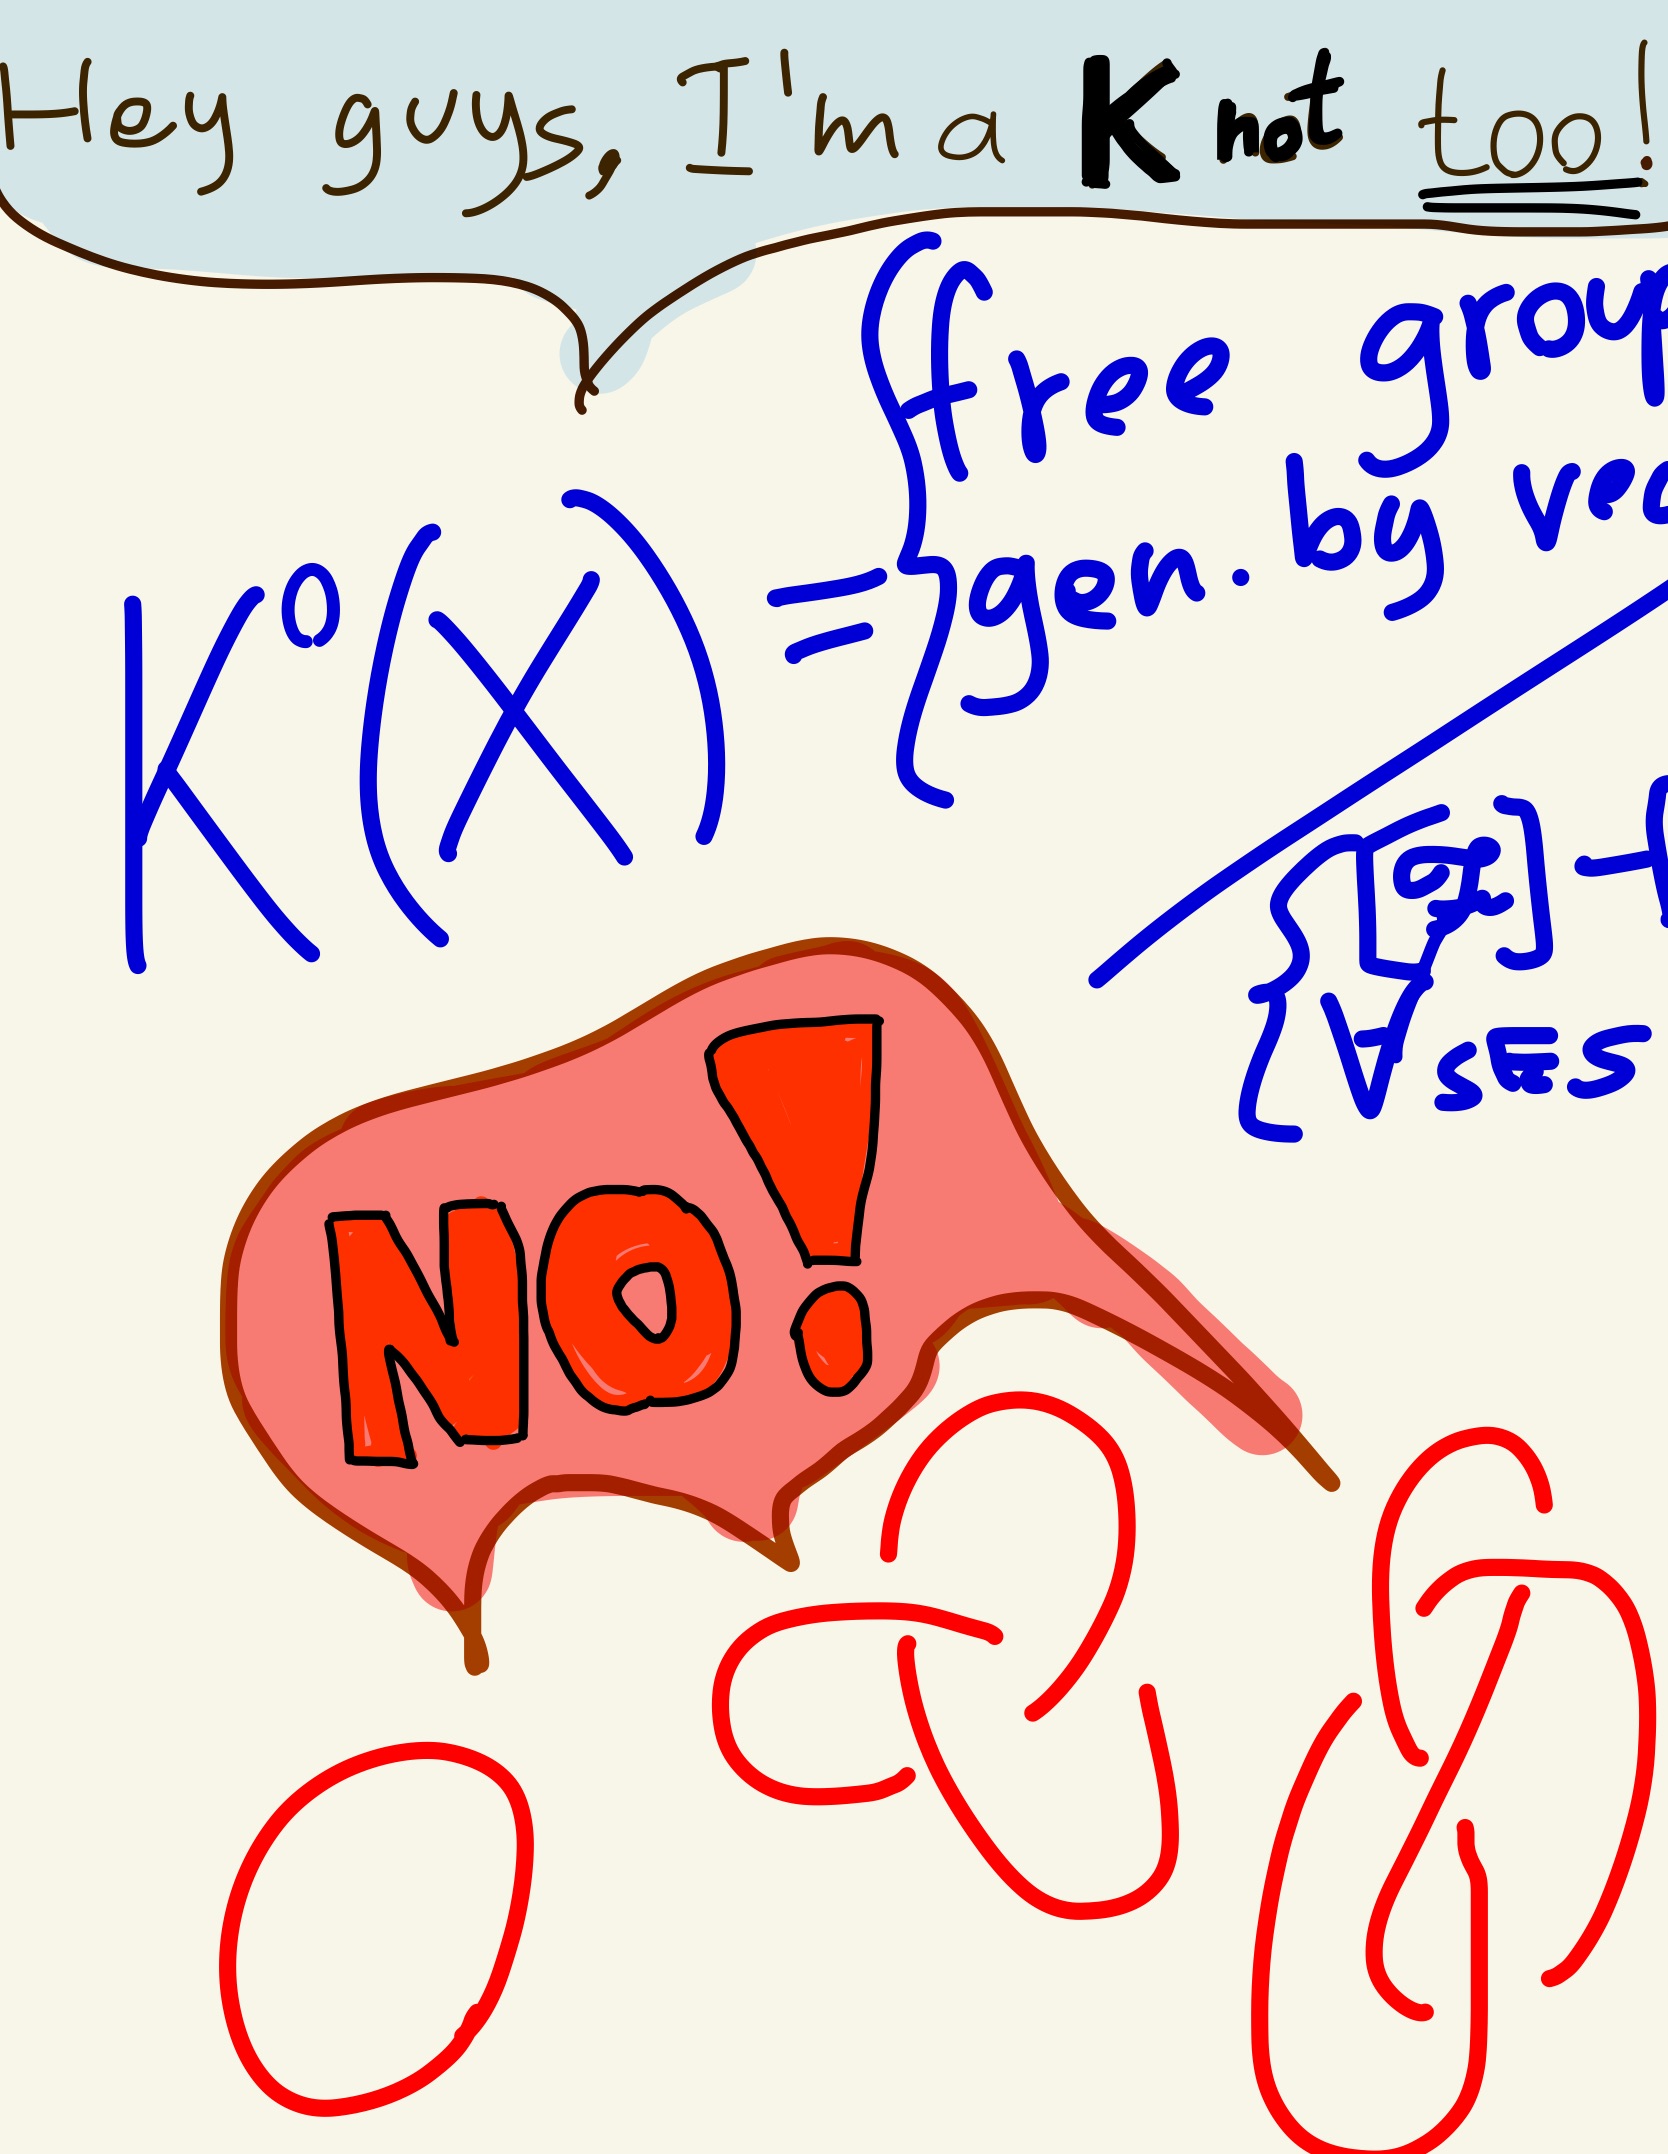 Hey guys, I'm a Knot too!
free group
K⁰(X) = { gen. by vec
∀ SES
NO!